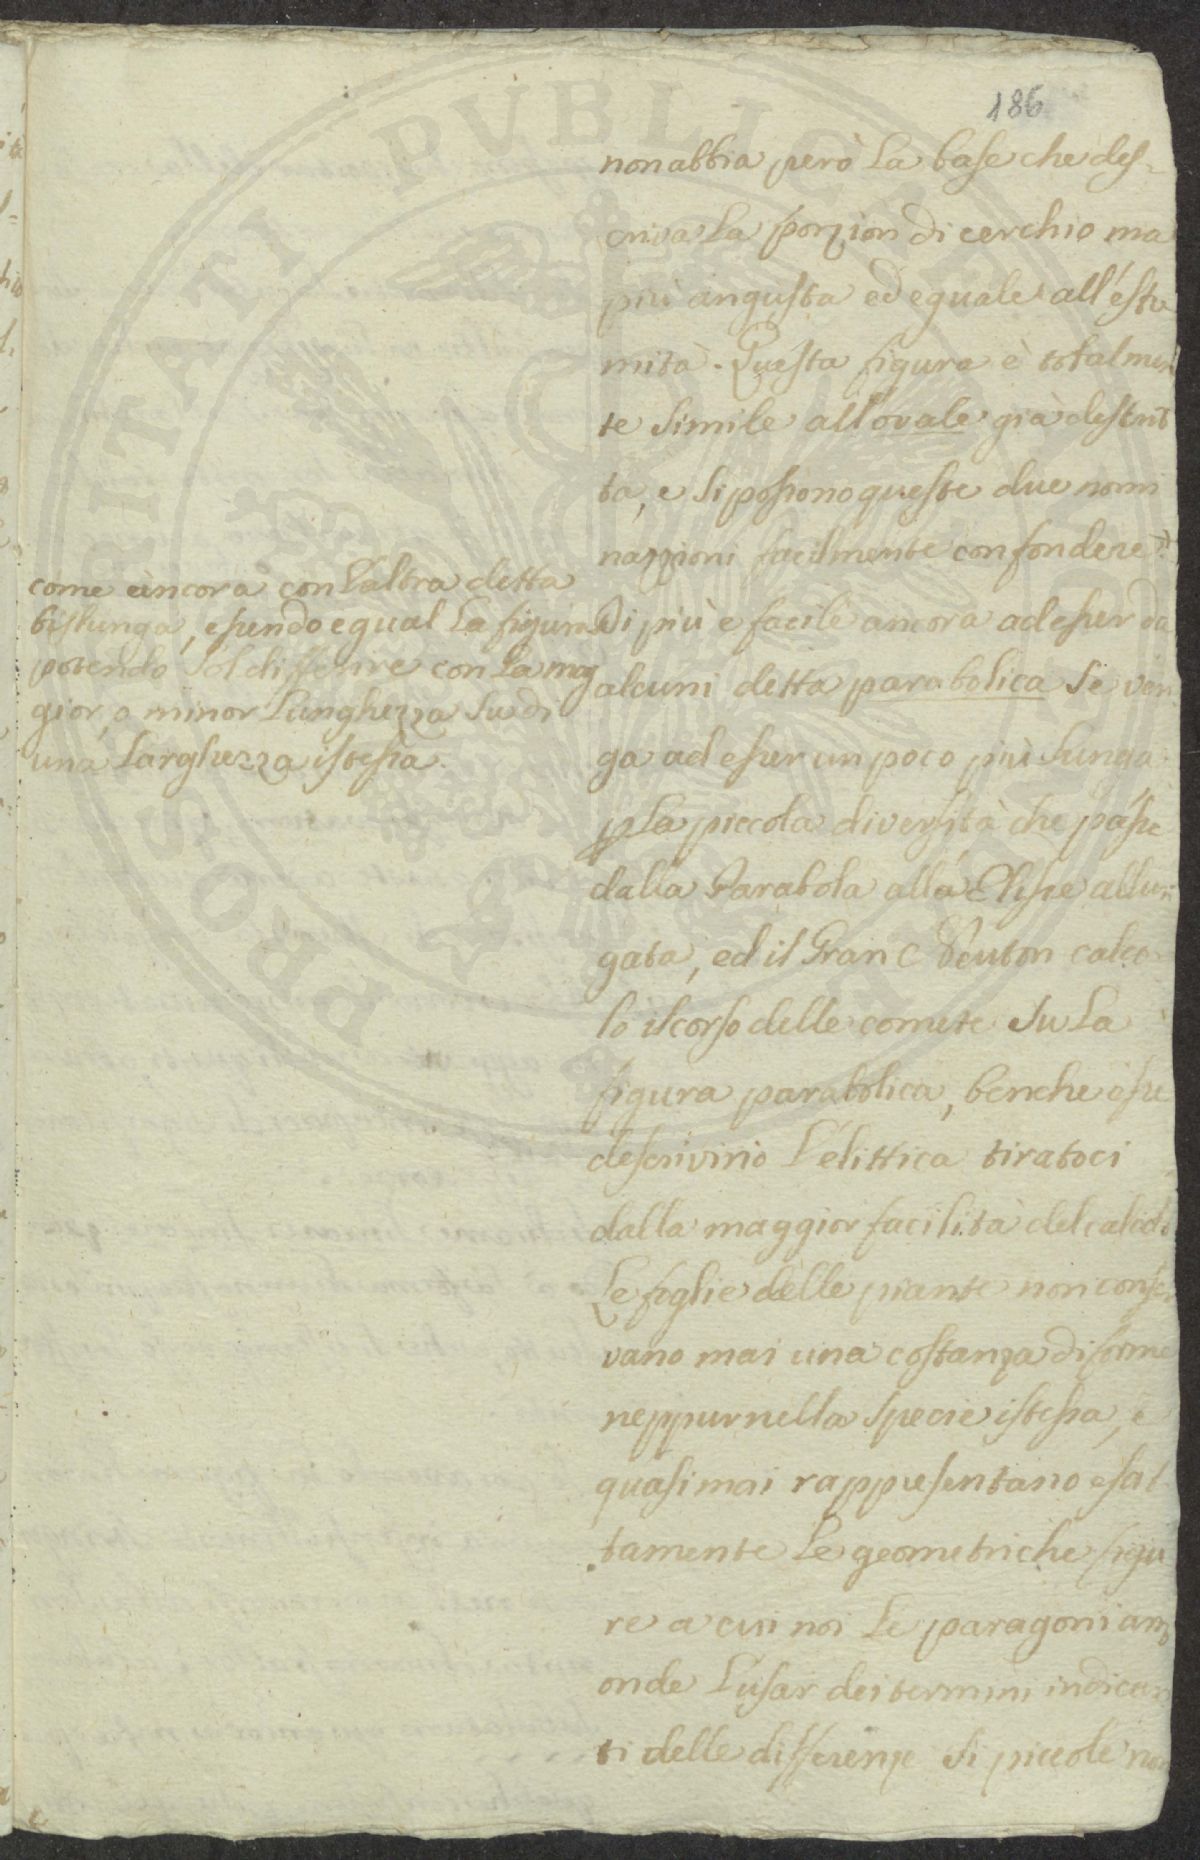 186
non abbia però la base che des-
criva la porzion di cerchio ma
più angusta ed eguale all'estre
mità. Questa figura è totalmen
te simile all'ovale già descrit
ta, e si possono queste due nomi
nazzioni facilmente confondere
come ancora con l'altra detta
bislunga, essendo egual la figura
potendo sol differire con la mag
gior, o minor lunghezza su di
una larghezza istessa.
Di più è facile ancora ad esser da
alcuni detta parabolica se ven
ga ad esser un poco più lunga
p la piccola diversità che passa
dalla Parabola alla Elisse allun
gata, ed il Gran Neuton calco
lo il corso delle comete su la
figura parabolica, benche esse
descrivino l'elittica tiratoci
dalla maggior facilità del calcolo
Le foglie delle piante non conser
vano mai una costanza di forme
neppur nella specie istessa, e
quasi mai rappresentano esat
tamente le geometriche figu
re a cui noi le paragoniamo
onde l'usar dei termini indican
ti delle differenze si piccole non
PROSPERITATI PVBLICAE